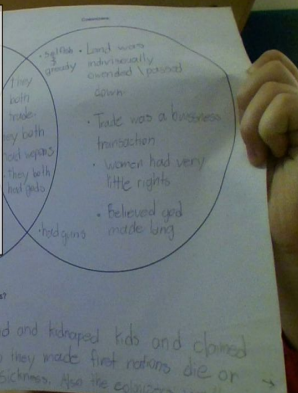 They
both
trade.
They both
had wepons
They both
had gods
• selfish
&
greedy
• Land was
indivisevally
owended \ passed
down.
• Trade was a bussness
transaction
• women had very
little rights
• Believed god
made king
• had guns
and kidnaped kids and claimed
they made first nations die or
sickness. Also the